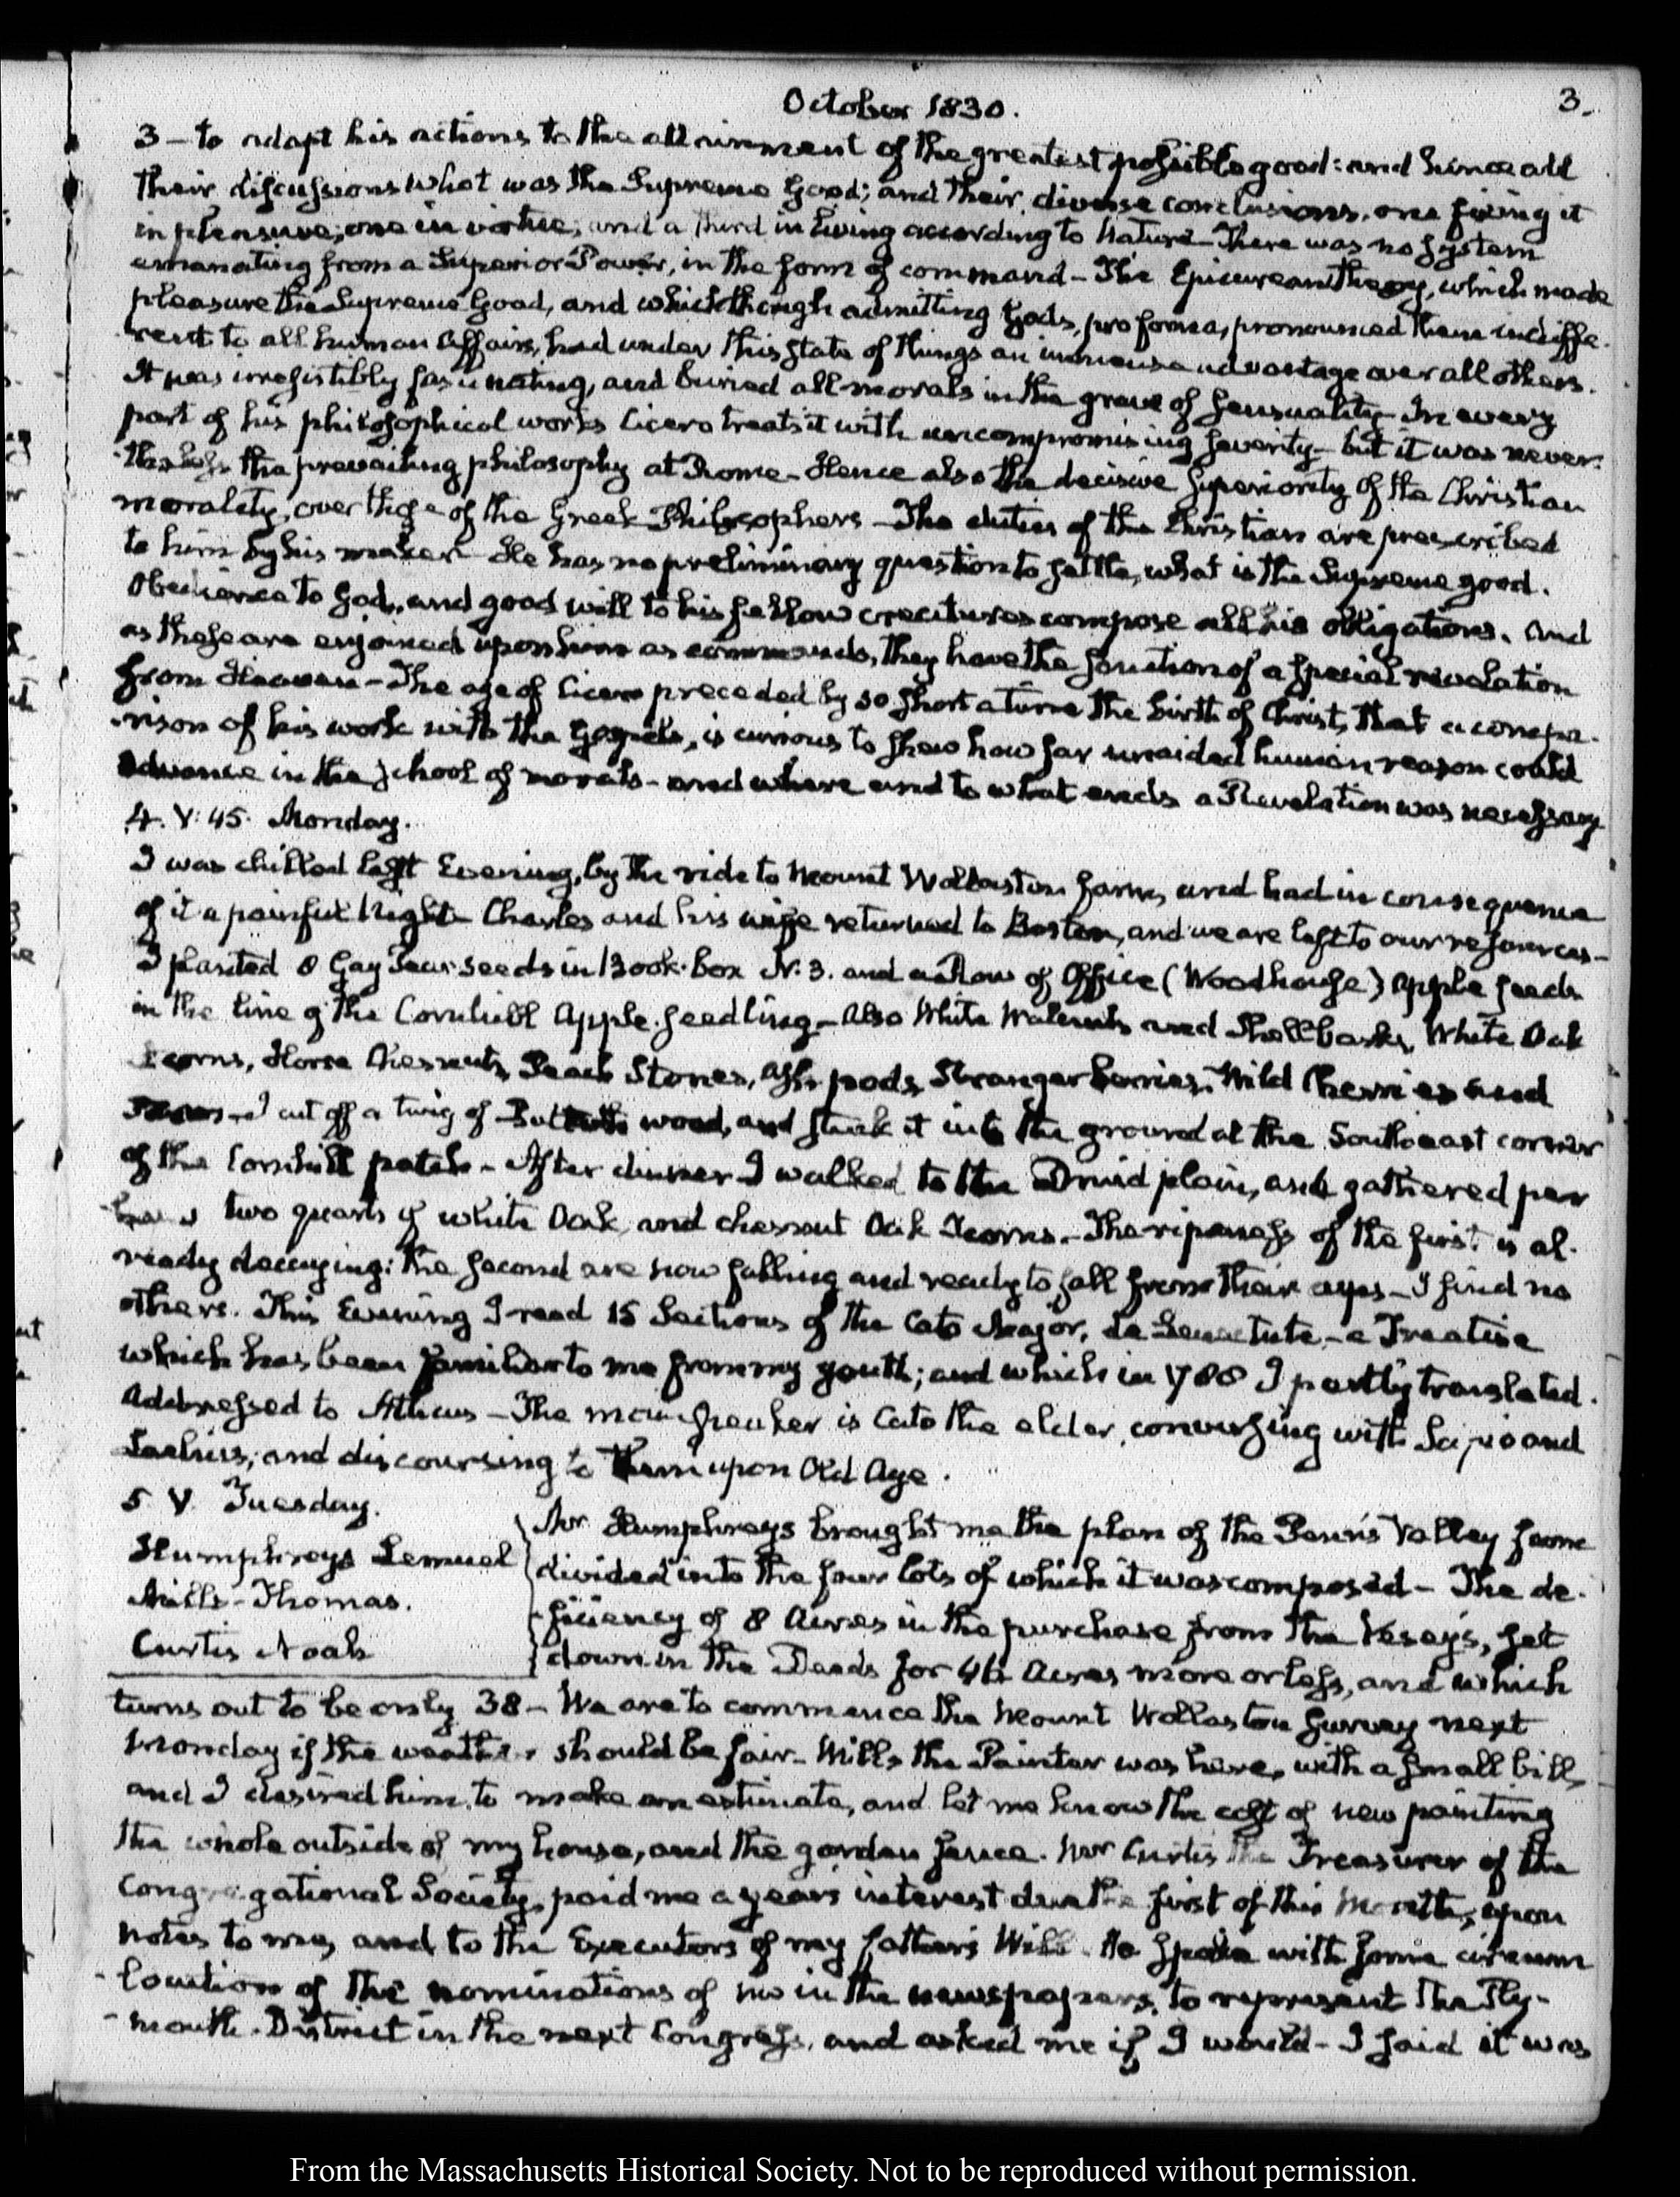 October 1830.
3.
3 – to adapt his actions to the attainment of the greatest possible good: and hence all
their discussions what was the Supreme Good; and their diverse conclusions, one fixing it
in pleasure; one in virtue; and a third in living according to Nature – There was no system
emanating from a Superior Power, in the form of command – The Epicurean Theory, which made
pleasure the Supreme Good, and which though admitting Gods, pro forma, pronounced them indiffe-
rent to all human affairs, had under this state of things an immense advantage over all others.
It was irresistibly fascinating, and buried all morals in the grave of sensuality – In every
part of his philosophical works Cicero treats it with uncompromising severity – but it was never-
theless the prevailing philosophy at Rome – Hence also the decisive superiority of the Christian
morality, over those of the Greek Philosophers – The duties of the Christian are prescribed
to him by his maker – He has no preliminary question to settle, what is the Supreme good.
Obedience to God, and good will to his fellow creatures compose all his obligations. And
as these are enjoined upon him as commands, they have the sanction of a special revelation
from Heaven – The age of Cicero preceded by so short a time the birth of Christ, that a compa-
rison of his work with the Gospels, is curious to shew how far unaided human reason could
advance in the school of morals – and where and to what ends a Revelation was necessary
4. V: 45. Monday.
I was chilled last Evening, by the ride to Mount Wollaston farm, and had in consequence
of it a painful Night – Charles and his wife returned to Boston, and we are left to our resources –
I planted 8 Gay Pear seeds in Book-box N. 3. and a Row of Office (Woodhouse) apple seeds
in the line of the Cornhill Apple seedling – Also White Walnuts and Shellbarks, White Oak
Acorns, Horse Chesnuts, Peach Stones, Ash pods, Stranger berries, Wild Cherries and
I cut off a twig of wood, and stuck it into the ground at the Southeast corner
of the Cornhill patch – After dinner I walked to the Druid plain, and gathered per-
haps two quarts of white Oak, and chesnut Oak Acorns – The ripeness of the first is al-
ready decaying: the second are now falling and ready to fall from their cups – I find no
others. This Evening I read 15 Sections of the Cato Major, de Senectute – a Treatise
which has been familiar to me from my youth; and which in 1788 I partly translated.
Addressed to Atticus – The main speaker is Cato the elder, conversing with Scipio and
Laelius, and discoursing to them upon Old Age.
5. V. Tuesday.
Humphreys Lemuel
Mills – Thomas.
Curtis Noah
Mr Humphreys brought me the plan of the Penn's Valley farm
divided into the four lots of which it was composed – The de-
ficiency of 8 Acres in the purchase from the Veseys, set
down in the Deeds for 46 Acres more or less, and which
turns out to be only 38 – We are to commence the Mount Wollaston survey next
Monday if the weather should be fair – Mills the Painter was here, with a small bill,
and I desired him to make an estimate, and let me know the cost of new painting
the whole outside of my house, and the garden fence. Mr Curtis the Treasurer of the
Congregational Society, paid me a years interest due the first of this Month, upon
notes to me, and to the Executors of my father's Will. He spoke with some circum-
locution of the nominations of me in the newspapers, to represent the Ply-
mouth District in the next Congress, and asked me if I would – I said it was
From the Massachusetts Historical Society. Not to be reproduced without permission.